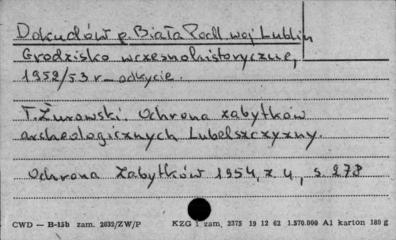 Dokudów p. Biała Podl. woj Lublin
Grodzisko wczesnohistoryczne,
1952/53 r – odkycie.
T. Żurowski. Ochrona zabytków
archeologicznych Lubelszczyzny.
Ochrona Zabytków 1954, z 4, s. 278
CWD — B-15b zam. 2032/ZW/P KZG 1 zam. 2375 19 12 62 1.570.000 A1 karton 180 g